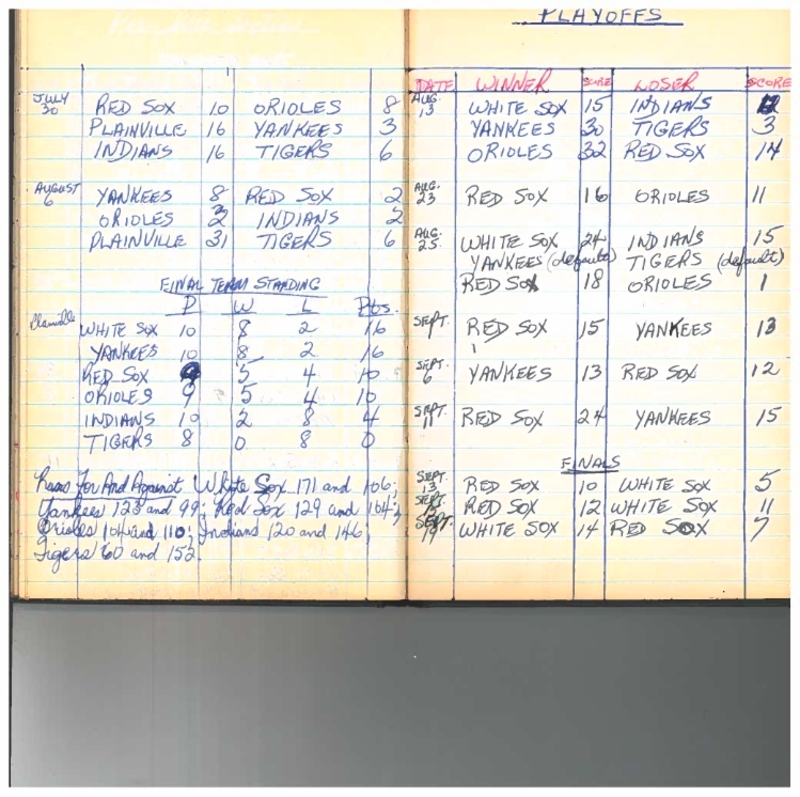 JULY 30 RED SOX 10 ORIOLES 8
PLAINVILLE 16 YANKEES 3
INDIANS 16 TIGERS 6
AUGUST 6 YANKEES 8 RED SOX 2
ORIOLES 3 INDIANS 2
PLAINVILLE 31 TIGERS 6
FINAL TERM STANDING
P W L Pts.
Plainville WHITE SOX 10 8 2 16
YANKEES 10 8 2 16
RED SOX 9 5 4 10
ORIOLES 9 5 4 10
INDIANS 10 2 8 4
TIGERS 8 0 8 0
Runs For And Against White Sox 171 and 106;
Yankees 123 and 99; Red Sox 129 and 104;
Orioles 104 and 110; Indians 120 and 146;
Tigers 60 and 152.
PLAYOFFS
DATE WINNER SCORE LOSER SCORE
AUG. 13 WHITE SOX 15 INDIANS
YANKEES 30 TIGERS 3
ORIOLES 32 RED SOX 14
AUG. 23 RED SOX 16 ORIOLES 11
AUG. 25 WHITE SOX 24 INDIANS 15
YANKEES (default) TIGERS (default)
RED SOX 18 ORIOLES 1
SEPT. 1 RED SOX 15 YANKEES 13
SEPT. 6 YANKEES 13 RED SOX 12
SEPT. 11 RED SOX 24 YANKEES 15
FINALS
SEPT. 13 RED SOX 10 WHITE SOX 5
SEPT. RED SOX 12 WHITE SOX 11
SEPT. 19 WHITE SOX 14 RED SOX 7